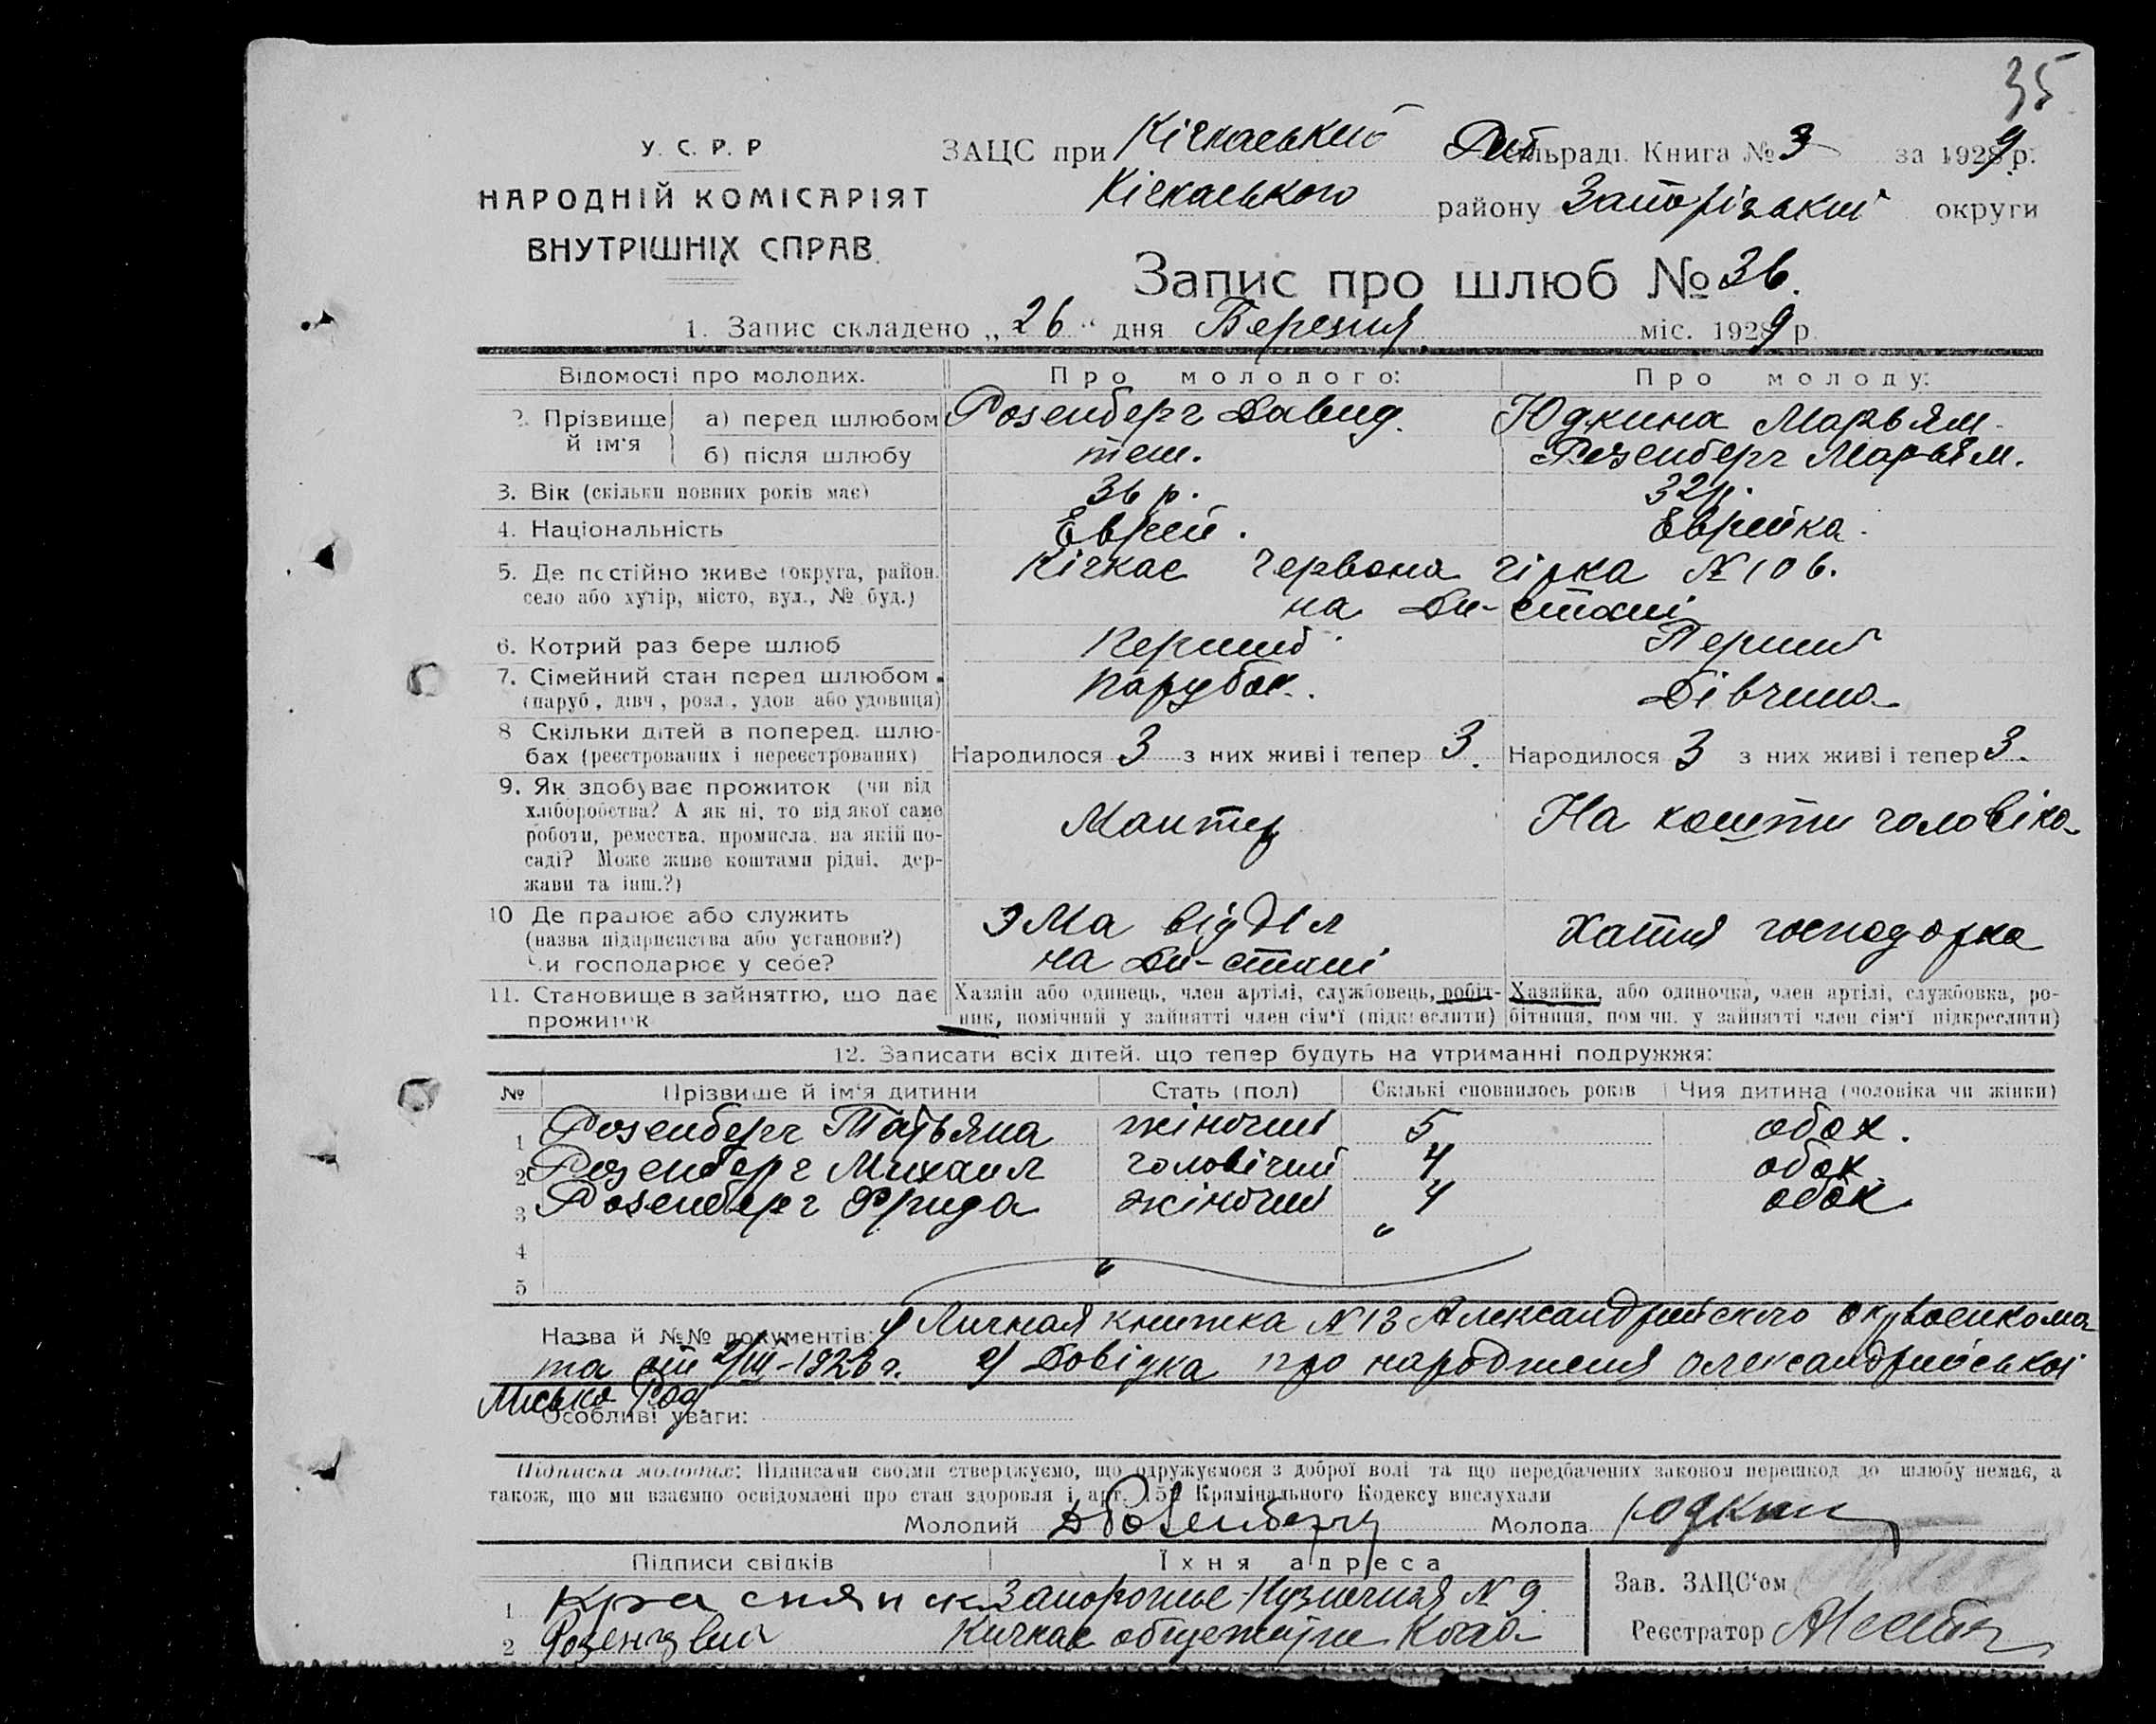 35
У. С. Р. Р
НАРОДНІЙ КОМІСАРІЯТ
ВНУТРІШНІХ СПРАВ.
ЗАЦС при Кічкаський сільраді. Книга № 3 за 1929 р.
Кічкаського району Запорізький округи
Запис про шлюб № 36.
1. Запис складено „26" дня Березня міс. 1929 р
Відомості про молодих. Про молодого: Про молоду:
2. Прізвище й ім'я а) перед шлюбом Розенберг Давид. Юдкина Марьям.
б) після шлюбу теж. Розенберг Марьям.
3. Вік (скільки повних років має) 36 р. 32 р.
4. Національність Еврей. Еврейка.
5. Де постійно живе (округа, район. Кічкас Червона гірка № 106.
село або хутір, місто, вул., № буд.) на Дн-стані
6. Котрий раз бере шлюб Перший Перший
7. Сімейний стан перед шлюбом. Парубок. Дівчина
(паруб, дівч, розл., удов або удовиця)
8 Скільки дітей в поперед. шлю-
бах (реєстрованих і нереєстрованих) Народилося 3 з них живі і тепер 3. Народилося 3 з них живі і тепер 3.
9. Як здобуває прожиток (чи від
хліборобства? А як ні, то від якої саме
роботи, ремества, промисла, на якій по- Монтер На кошти чоловіка
саді? Може живе коштами рідні, дер-
жави та інш.?)
10 Де працює або служить ЭМа відділ Хатня господарка
(назва підприємства або установи?)
Чи господарює у себе? на Дн-стані
11. Становище в зайняттю, що дає Хазяїн або одинець, член артілі, службовець, робіт- Хазяйка, або одиночка, член артілі, службовка, ро-
прожиток ник, помічний у зайнятті член сім'ї (підкреслити) бітниця, пом чн. у зайнятті член сім'ї підкреслити)
12. Записати всіх дітей. що тепер будуть на утриманні подружжя:
№ Прізвише й ім'я дитини Стать (пол) Скількі сповнилось років Чия дитина (чоловіка чи жінки)
1 Розенберг Татьяна жіночий 5 обох.
2 Розенберг Михаил чоловічий 4 обох
3 Розенберг Фрида жіночий 4 обох
4
5
Назва й №№ документів: Личная книжка № 13 Александрийского окрвоенкомата
2) Довідка про народження Олександрийської
Міськ Рад.
Особливі уваги:
Підписка молодих: Підписами своїми стверджуємо, що одружуємося з доброї волі та що передбачених законом перешкод до шлюбу немає, а
також, що ми взаємно освідомлені про стан здоровля і арт. 15 Кримінального Кодексу вислухали
Молодий ДРозенберг Молода Юдкин
Підписи свідків Їхня адреса Зав. ЗАЦС'ом
1 Запорожье Кузнечная № 9.
2 Кичкас общежитие Реєстратор